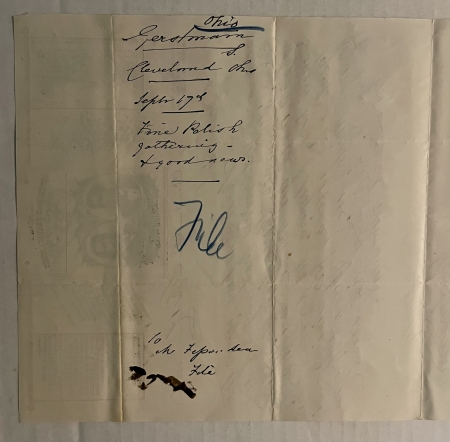 Ohio
Gerstmann
S.
Cleveland Ohio
Septr 17th
Fine Polish
gathering -
& good news.
File
To
File